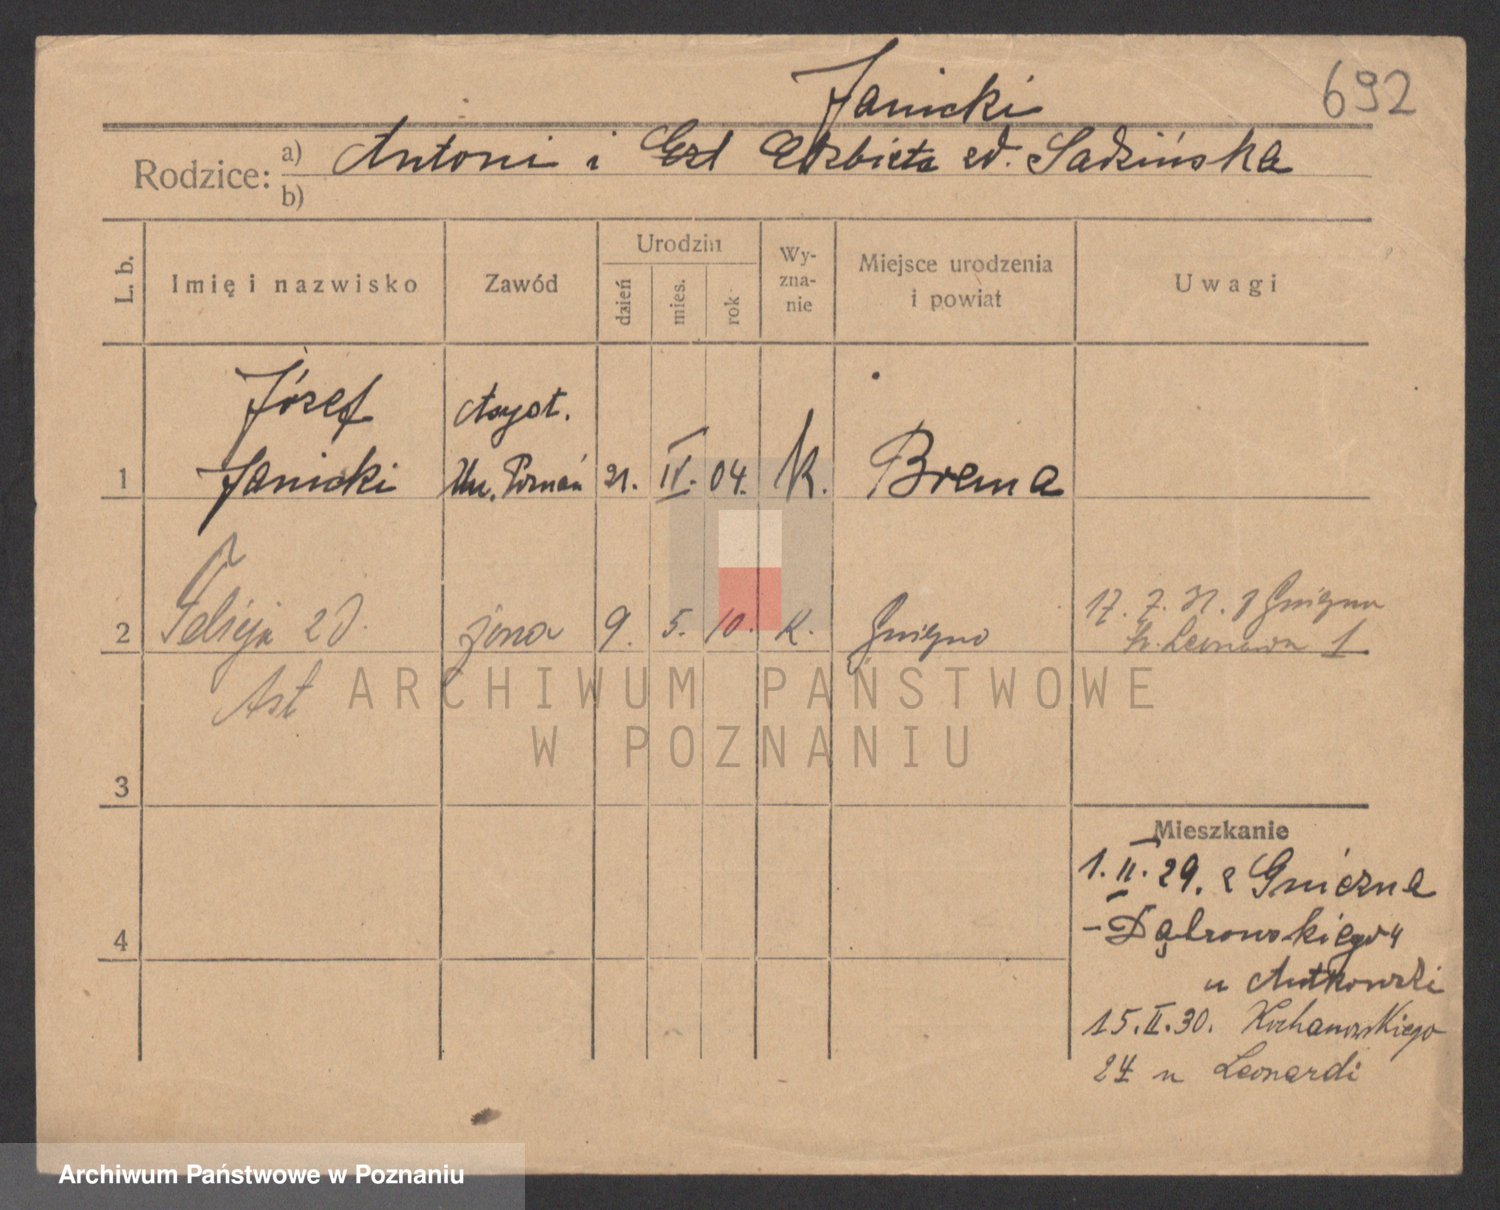 Janicki
692
Rodzice: a) Antoni i Elżbieta zd. Sadzińska
b)
L. b.
Imię i nazwisko
Zawód
Urodzin
dzień
mies.
rok
Wy-
zna-
nie
Miejsce urodzenia
i powiat
Uwagi
Józef
Asyst.
1 Janicki Un. Poznań 21. IV. 04. K. Brema
2 Felicja zd. żona 9. 5. 10. K. Gniezno
Ast
17. 7. 31. z Gniezna
1
3
4
Mieszkanie
1.II.29. z Gniezna
-Dąbrowskiego 4
u Antkowski
15.II.30. Kochanowskiego
24 u Leonardi
ARCHIWUM PAŃSTWOWE
W POZNANIU
Archiwum Państwowe w Poznaniu